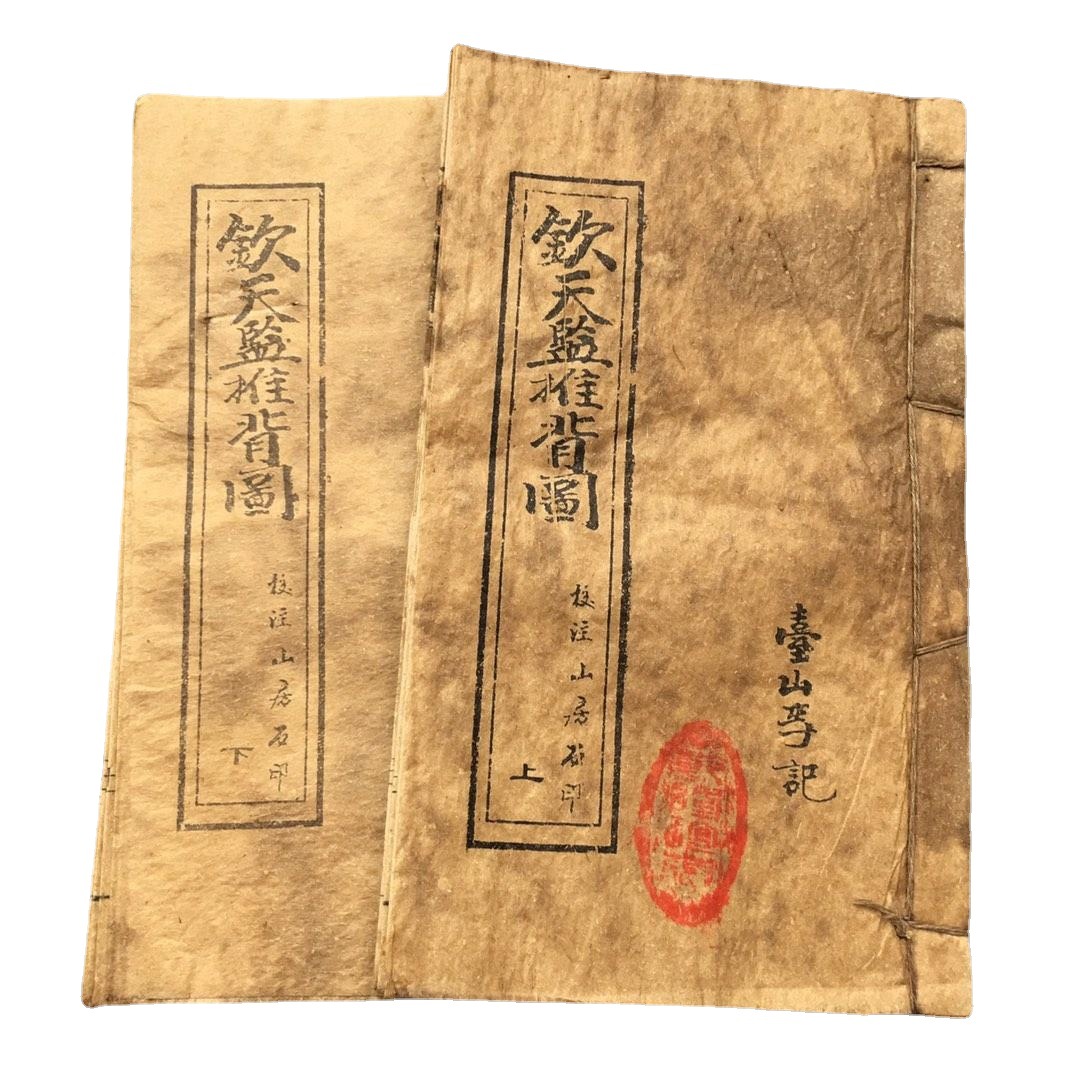 臺山李記
欽天監推背圖
校注山房石印
上
欽天監推背圖
校注山房石印
下